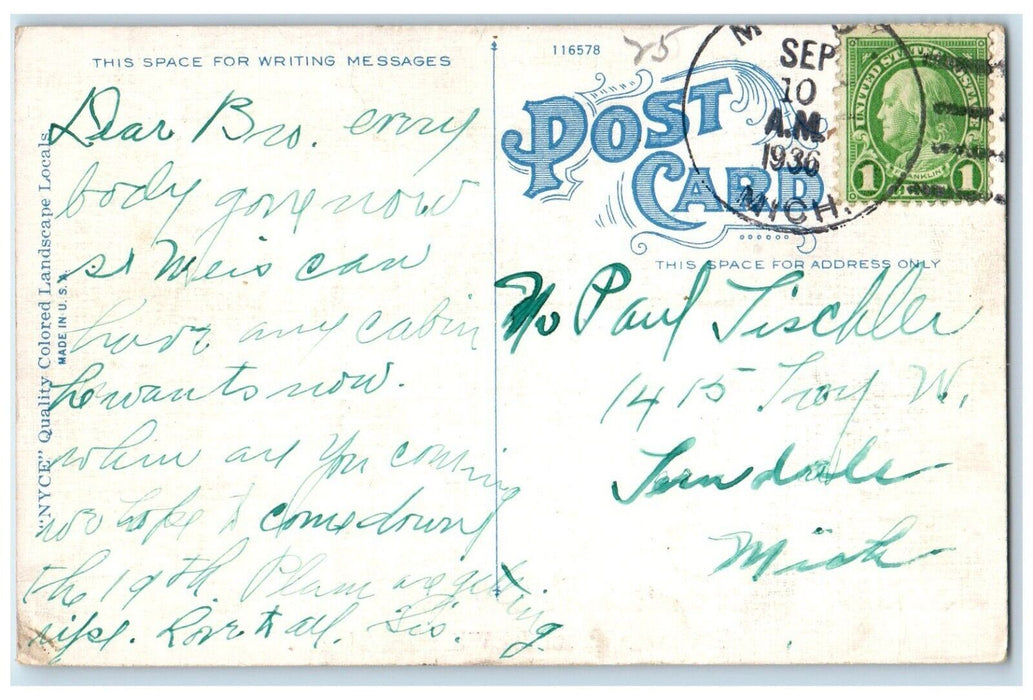 THIS SPACE FOR WRITING MESSAGES
Dear Bro. every
body gone now
so can
have any cabin
he wants now.
when are you coming
we hope to come down
the 19th. Plums are getting
ripe. Love to all. Sis.
"NYCE" Quality Colored Landscape Locals.
MADE IN U.S.A.
116578
25
POST
CARD
THIS SPACE FOR ADDRESS ONLY
SEP
10
A.M.
1936
MICH.
UNITED STATES POSTAGE
1 FRANKLIN 1
Paul Tischler
1415 Troy W.
Ferndale
Mich